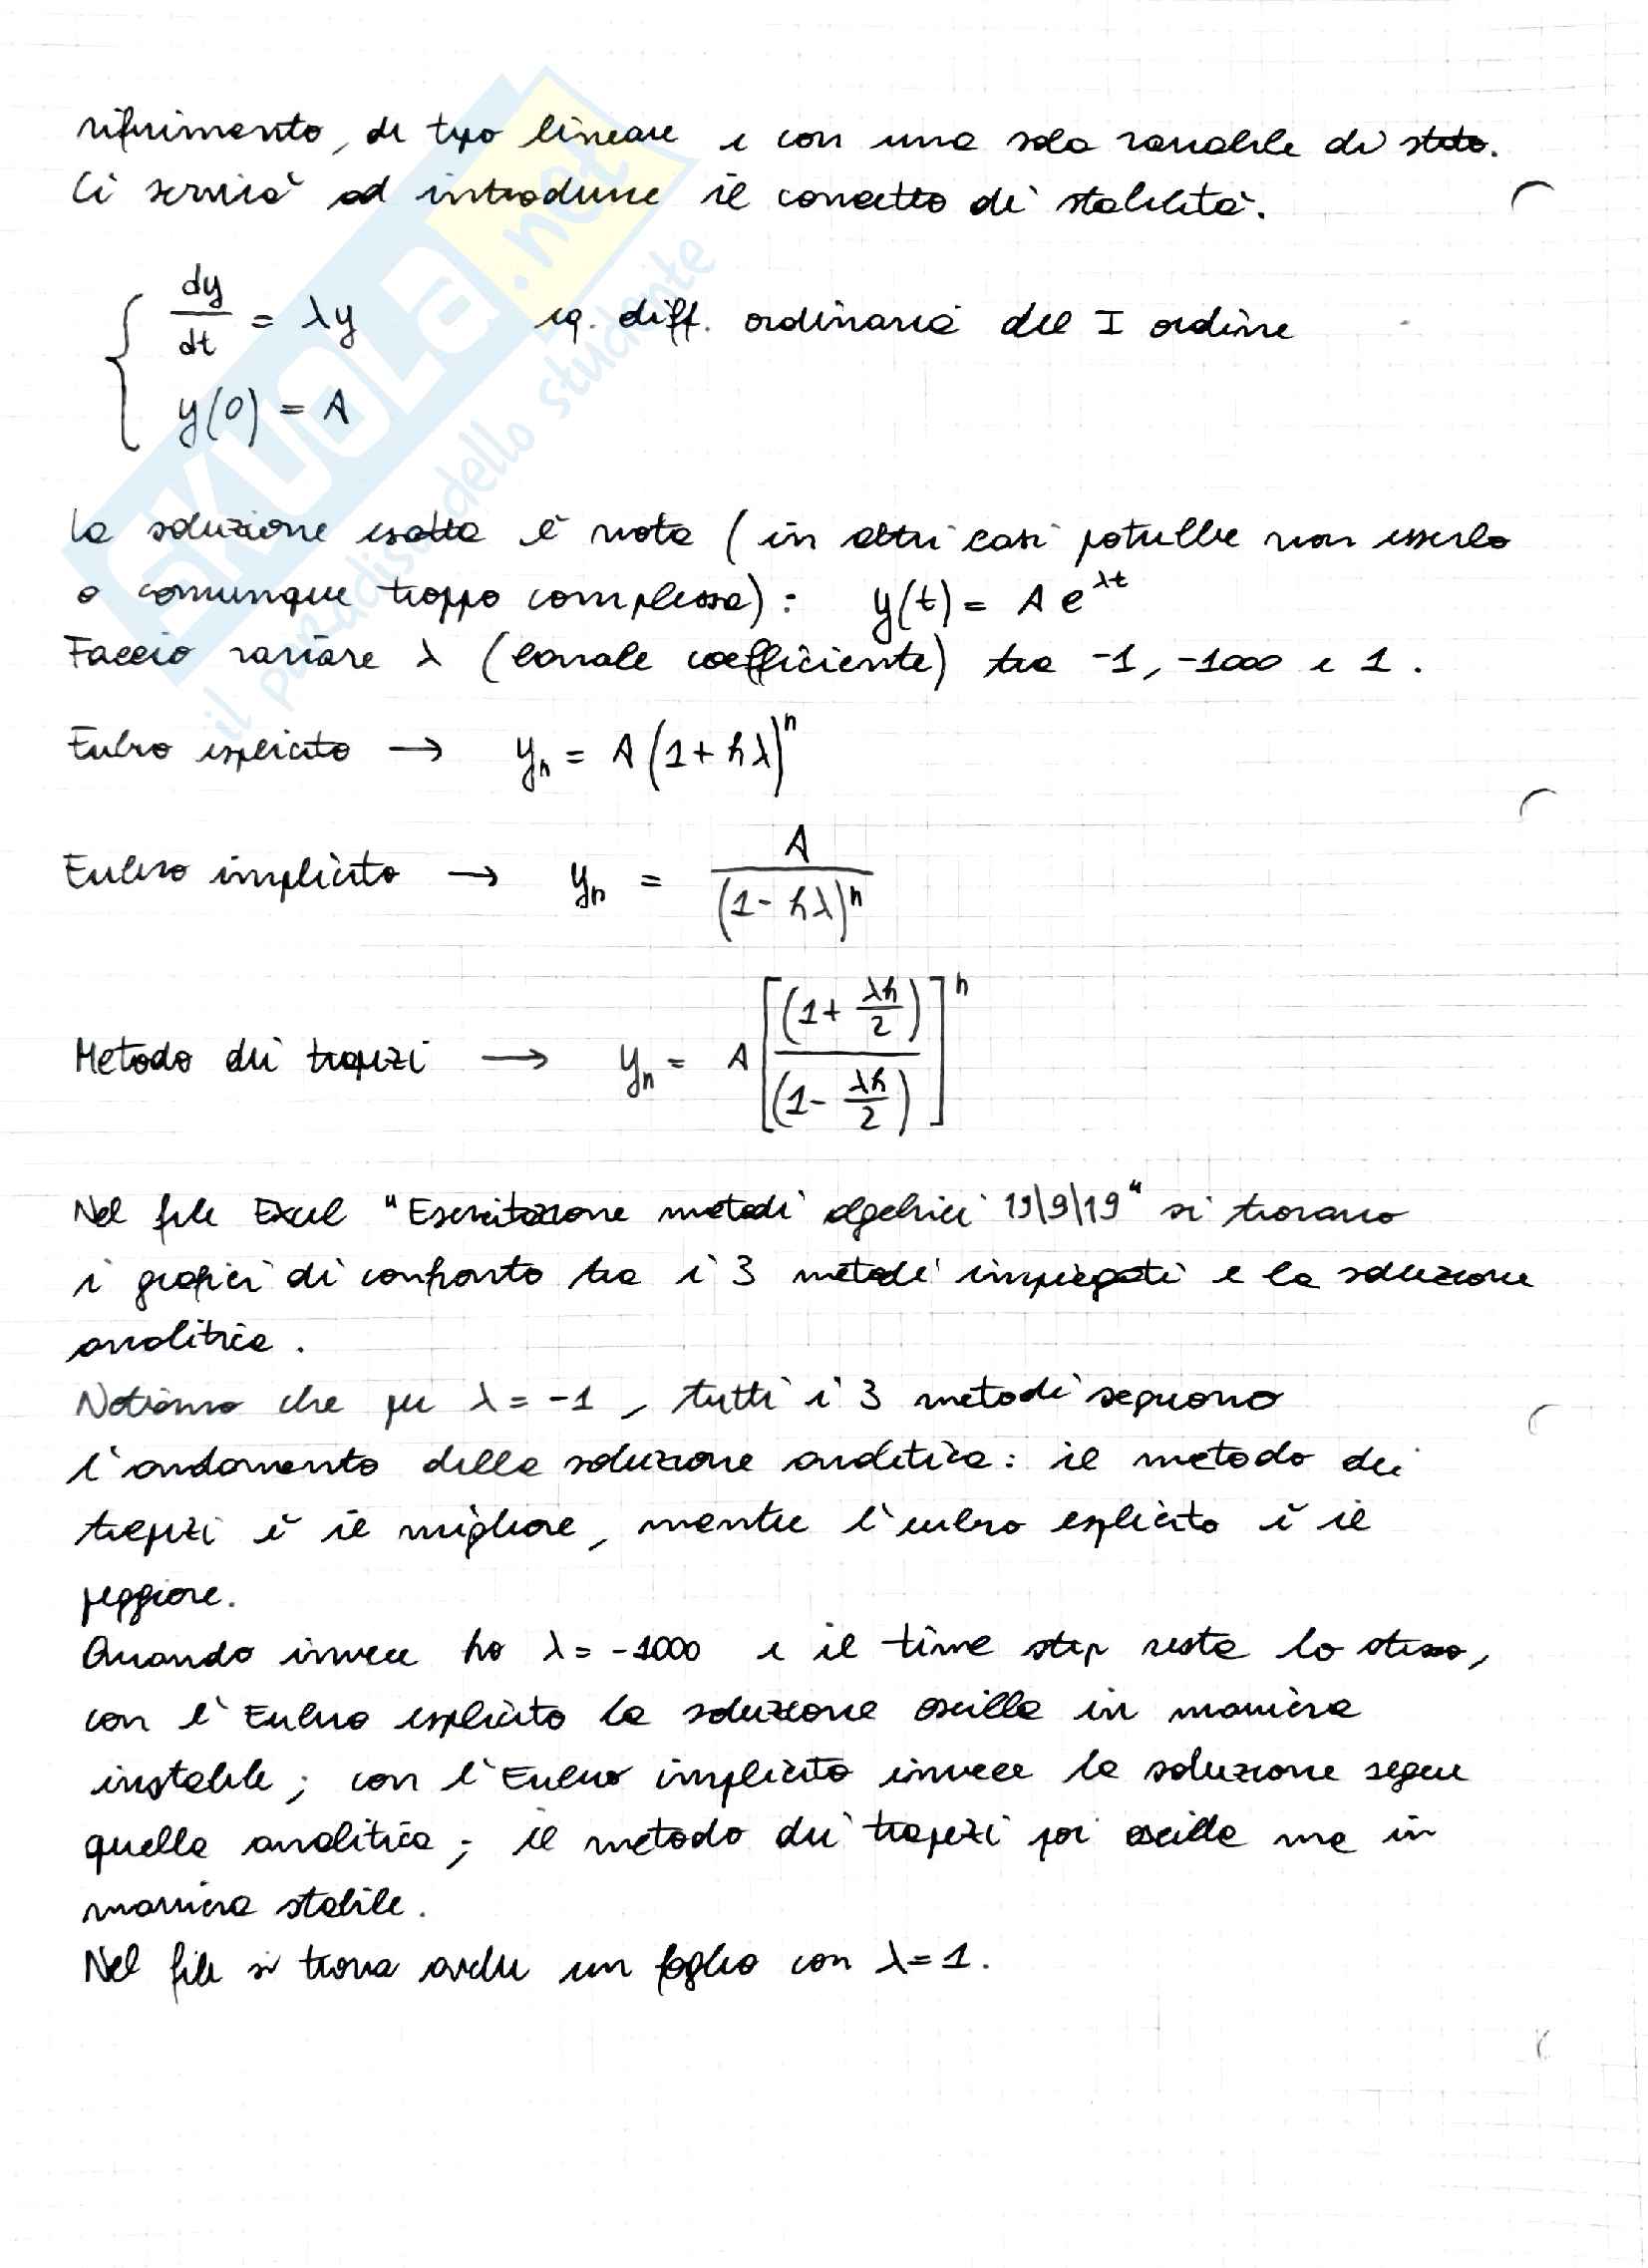 riferimento, di tipo lineare e con una sola variabile di stato.
Ci servirà ad introdurre il concetto di stabilità.
dy/dt = λy eq. diff. ordinaria del I ordine
y(0) = A
La soluzione esatta è nota (in altri casi potrebbe non esserlo
o comunque troppo complessa): y(t) = A e^λt
Faccio variare λ (banale coefficiente) tra -1, -1000 e 1.
Eulero esplicito → yn = A (1 + hλ)^n
Eulero implicito → yn = A / (1 - hλ)^n
Metodo dei trapezi → yn = A [(1 + λh/2) / (1 - λh/2)]^n
Nel file Excel "Esercitazione metodi algebrici 19\9\19" si trovano
i grafici di confronto tra i 3 metodi impiegati e la soluzione
analitica.
Notiamo che per λ = -1, tutti i 3 metodi seguono
l'andamento della soluzione analitica: il metodo dei
trapezi è il migliore, mentre l'eulero esplicito è il
peggiore.
Quando invece ho λ = -1000 e il time step resta lo stesso,
con l'Eulero esplicito la soluzione oscilla in maniera
instabile; con l'Eulero implicito invece la soluzione segue
quella analitica; il metodo dei trapezi poi oscilla ma in
maniera stabile.
Nel file si trova anche un foglio con λ = 1.
SKUOLA.net
il paradiso dello studente